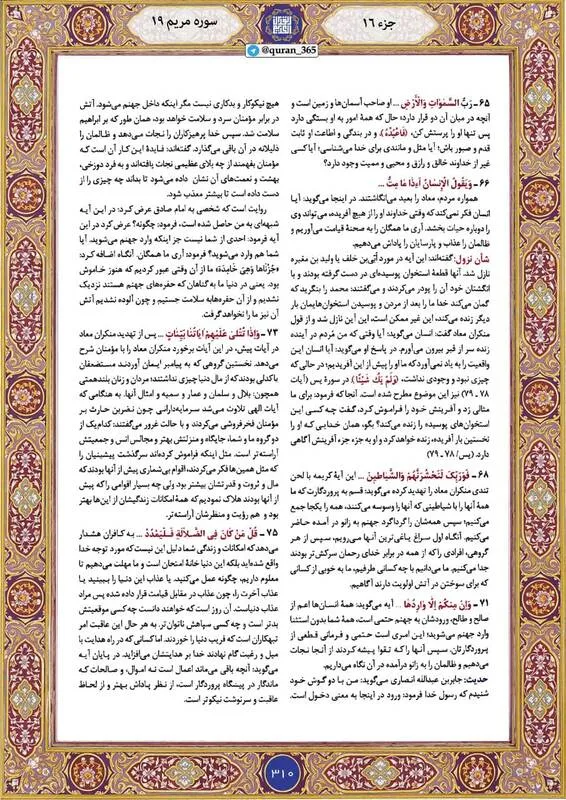 جزء ۱۶
سوره مریم ۱۹
@quran_365
۶۵ ـ رَبُّ السَّمٰوَاتِ وَالْأَرْضِ ... او صاحب آسمان‌ها و زمین است و
آنچه در میان آن دو قرار دارد؛ حال که همهٔ امور به او بستگی دارد
پس تنها او را پرستش کن، (فَاعْبُدْهُ)، و در بندگی و اطاعت او ثابت
قدم و صبور باش؛ آیا مثل و مانندی برای خدا می‌شناسی؛ آیا کسی
غیر از خداوند خالق و رازق و محیی و ممیت وجود دارد؟
۶۶ ـ وَیَقُولُ الْإِنْسَانُ أَءِذَا مَا مِتُّ ...
همواره مردم، معاد را بعید می‌انگاشتند. در اینجا می‌گوید: آیا
انسان فکر نمی‌کند که وقتی خداوند او را از هیچ آفریده، می‌تواند وی
را دوباره حیات بخشد. آری ما همگان را به صحنهٔ قیامت می‌آوریم و
ظالمان را عذاب و پارسایان را پاداش می‌دهیم.
شأن نزول: گفته‌اند: این آیه در مورد اُبَی‌بن خلف یا ولید بن مغیره
نازل شد. آنها قطعهٔ استخوان پوسیده‌ای در دست گرفته بودند و با
انگشتان خود آن را پودر می‌کردند و می‌گفتند: محمد را بنگرید که
گمان می‌کند خدا ما را بعد از مردن و پوسیدن استخوان‌هایمان بار
دیگر زنده می‌کند، این غیر ممکن است، این آیه نازل شد و از قول
منکران معاد گفت: انسان می‌گوید: آیا وقتی که من مُردم در آینده
زنده سر از قبر بیرون می‌آورم. در پاسخ او می‌گوید: آیا انسان این
واقعیت را به یاد نمی‌آورد که ما او را پیش از این آفریدیم؛ در حالی که
چیزی نبود و وجودی نداشت، (وَلَمْ یَكُ شَیْئًا). در سورهٔ یس (آیات
۷۸ ـ ۷۹) نیز این موضوع مطرح شده است. آنجا که فرمود: برای ما
مثالی زد و آفرینش خود را فراموش کرد، گفت چه کسی این
استخوان‌های پوسیده را زنده می‌کند؟ بگو، همان خدایی که او را
نخستین بار آفریده، زنده خواهد کرد و او به جزء جزء آفرینش آگاهی
دارد. (یس/ ۷۸ ـ ۷۹)
۶۸ ـ فَوَرَبِّكَ لَنَحْشُرَنَّهُمْ وَالشَّیَاطِینَ ... این آیهٔ کریمه با لحن
تندی منکران معاد را تهدید کرده می‌گوید: قسم به پروردگارت که ما
همهٔ آنها را با شیاطینی که آنها را وسوسه می‌کنند، همه را یکجا جمع
می‌کنیم؛ سپس همه‌شان را گرداگرد جهنم به زانو در آمده حاضر
می‌کنیم. آنگاه اول سراغ یاغی‌ترین آنها می‌رویم، سپس از هر
گروهی، افرادی را که از همه در برابر خدای رحمان سرکش‌تر بودند
جدا می‌کنیم. ما می‌دانیم با چه کسانی طرفیم، ما به خوبی از کسانی
که برای سوختن در آتش اولویت دارند آگاهیم.
۷۱ ـ وَإِنْ مِنْكُمْ إِلَّا وَارِدُهَا ... آیه می‌گوید: همهٔ انسان‌ها اعم از
صالح و طالح، ورودشان به جهنم حتمی است، همهٔ شما بدون استثنا
وارد جهنم می‌شوید؛ این امری است حتمی و فرمانی قطعی از
پروردگارتان. سپس آنها را که تقوا پیشه کردند از آنجا نجات
می‌دهیم و ظالمان را به زانو درآمده در آن نگاه می‌داریم.
حدیث: جابربن عبدالله انصاری می‌گوید: من با دو گوش خود
شنیدم که رسول خدا فرمود: ورود در اینجا به معنی دخول است.
هیچ نیکوکار و بدکاری نیست مگر اینکه داخل جهنم می‌شود. آتش
در برابر مؤمنان سرد و سلامت خواهد بود، همان طور که بر ابراهیم
سلامت شد. سپس خدا پرهیزکاران را نجات می‌دهد و ظالمان را
ذلیلانه در آن باقی می‌گذارد. گفته‌اند: فایدهٔ این کار آن است که
مؤمنان بفهمند از چه بلای عظیمی نجات یافته‌اند و به فرد دوزخی،
بهشت و نعمت‌های آن نشان داده می‌شود تا بداند چه چیزی را از
دست داده است تا بیشتر معذب شود.
روایت است که شخصی به امام صادق عرض کرد: در این آیه
شبهه‌ای به من حاصل شده است، فرمود: چگونه؟ عرض کرد در این
آیه فرمود: احدی از شما نیست جز اینکه وارد جهنم می‌شوید. آیا
شما هم وارد می‌شوید؟ فرمود: آری ما همگان. آنگاه اضافه کرد:
«جُزْنَاهَا وَهِیَ خَامِدَة» ما از آن وقتی عبور کردیم که هنوز خاموش
بود. یعنی در دنیا ما به گناهان که حفره‌های جهنم هستند نزدیک
نشدیم و از آن حفره‌ها به سلامت جستیم و چون آلوده نشدیم آتش
آن نیز ما را نخواهد گرفت.
۷۳ ـ وَإِذَا تُتْلَىٰ عَلَیْهِمْ آیَاتُنَا بَیِّنَاتٍ ... پس از تهدید منکران معاد
در آیات پیش، در این آیات برخورد منکران معاد را با مؤمنان شرح
می‌دهد. نخستین گروهی که به پیامبر ایمان آوردند مستضعفان
پاکدلی بودند که از مال دنیا چیزی نداشتند؛ مردان و زنان بلندهمتی
همچون: بلال و سلمان و عمار و سمیه و امثال آنها. به هنگامی که
آیات الهی تلاوت می‌شد سرمایه‌دارانی چون نضربن حارث بر
مؤمنان فخرفروشی می‌کردند و با حالت غرور می‌گفتند: کدام‌یک از
دو گروه ما و شما، جایگاه و منزلتش بهتر و مجالس انس و جمعیتش
آراسته‌تر است. مثل اینکه فراموش کرده‌اند سرگذشت پیشینیان را
که مثل همین‌ها فکر می‌کردند، اقوام بی‌شماری پیش از آنها بودند که
مال و ثروت و قدرتشان بیشتر بود ولی چه بسیار اقوامی را که پیش
از آنها بودند هلاک نمودیم که همهٔ امکانات زندگیشان از این‌ها بهتر
بود و هم رؤیت و منظرشان آراسته‌تر.
۷۵ ـ قُلْ مَنْ كَانَ فِی الضَّلَالَةِ فَلْیَمْدُدْ ... به کافران هشدار
می‌دهد که امکانات و زندگی شما دلیل این نیست که مورد توجه خدا
واقع شده‌اید بلکه این دنیا خانهٔ امتحان است و ما مهلت می‌دهیم تا
معلوم داریم، چگونه عمل می‌کنید. یا عذاب این دنیا را ببینید یا
عذاب آخرت را، چون عذاب در مقابل قیامت قرار داده شده پس مراد
عذاب دنیاست. آن روز است که خواهند دانست چه کسی موقعیتش
بدتر است و چه کسی سپاهش ناتوان‌تر. به هر حال این عاقبت امر
تبهکاران است که فریب دنیا را خوردند. اما کسانی که در راه هدایت با
میل و رغبت گام نهادند خدا بر هدایتشان می‌افزاید. در پایان آیه
می‌گوید: آنچه باقی می‌ماند اعمال است نه اموال، و صالحات که
ماندگار در پیشگاه پروردگار است، از نظر پاداش بهتر و از لحاظ
عاقبت و سرنوشت نیکوتر است.
۳۱۰